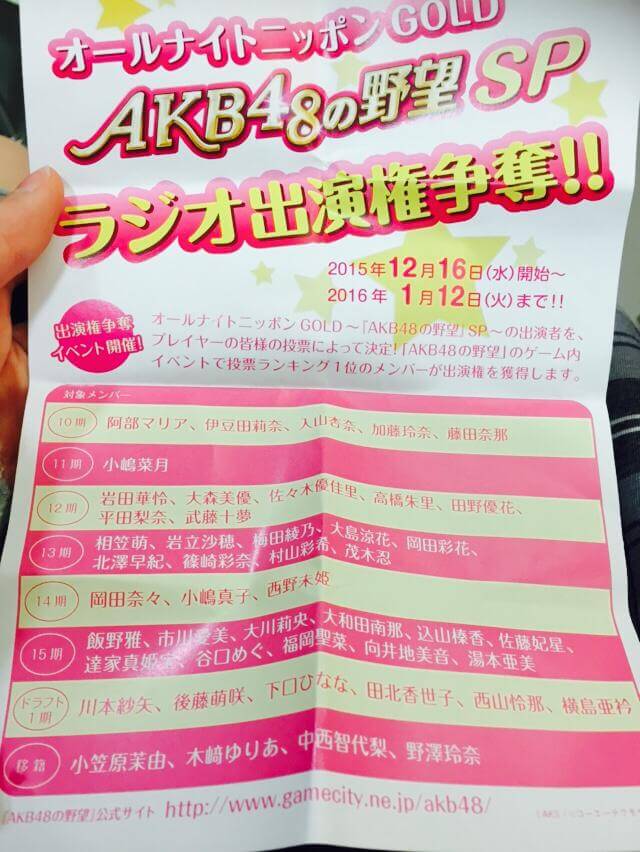 オールナイトニッポンGOLD
AKB48の野望 SP
ラジオ出演権争奪!!
2015年12月16日(水)開始〜
2016年 1月12日(火)まで!!
出演権争奪
イベント開催!
オールナイトニッポンGOLD〜『AKB48の野望』SP〜の出演者を、
プレイヤーの皆様の投票によって決定!『AKB48の野望』のゲーム内
イベントで投票ランキング1位のメンバーが出演権を獲得します。
対象メンバー
10期 阿部マリア、伊豆田莉奈、入山杏奈、加藤玲奈、藤田奈那
11期 小嶋菜月
12期 岩田華怜、大森美優、佐々木優佳里、高橋朱里、田野優花、
平田梨奈、武藤十夢
13期 相笠萌、岩立沙穂、梅田綾乃、大島涼花、岡田彩花、
北澤早紀、篠崎彩奈、村山彩希、茂木忍
14期 岡田奈々、小嶋真子、西野未姫
15期 飯野雅、市川愛美、大川莉央、大和田南那、込山榛香、佐藤妃星、
達家真姫宝、谷口めぐ、福岡聖菜、向井地美音、湯本亜美
ドラフト1期 川本紗矢、後藤萌咲、下口ひなな、田北香世子、西山怜那、横島亜衿
移籍 小笠原茉由、木﨑ゆりあ、中西智代梨、野澤玲奈
『AKB48の野望』公式サイト http://www.gamecity.ne.jp/akb48/